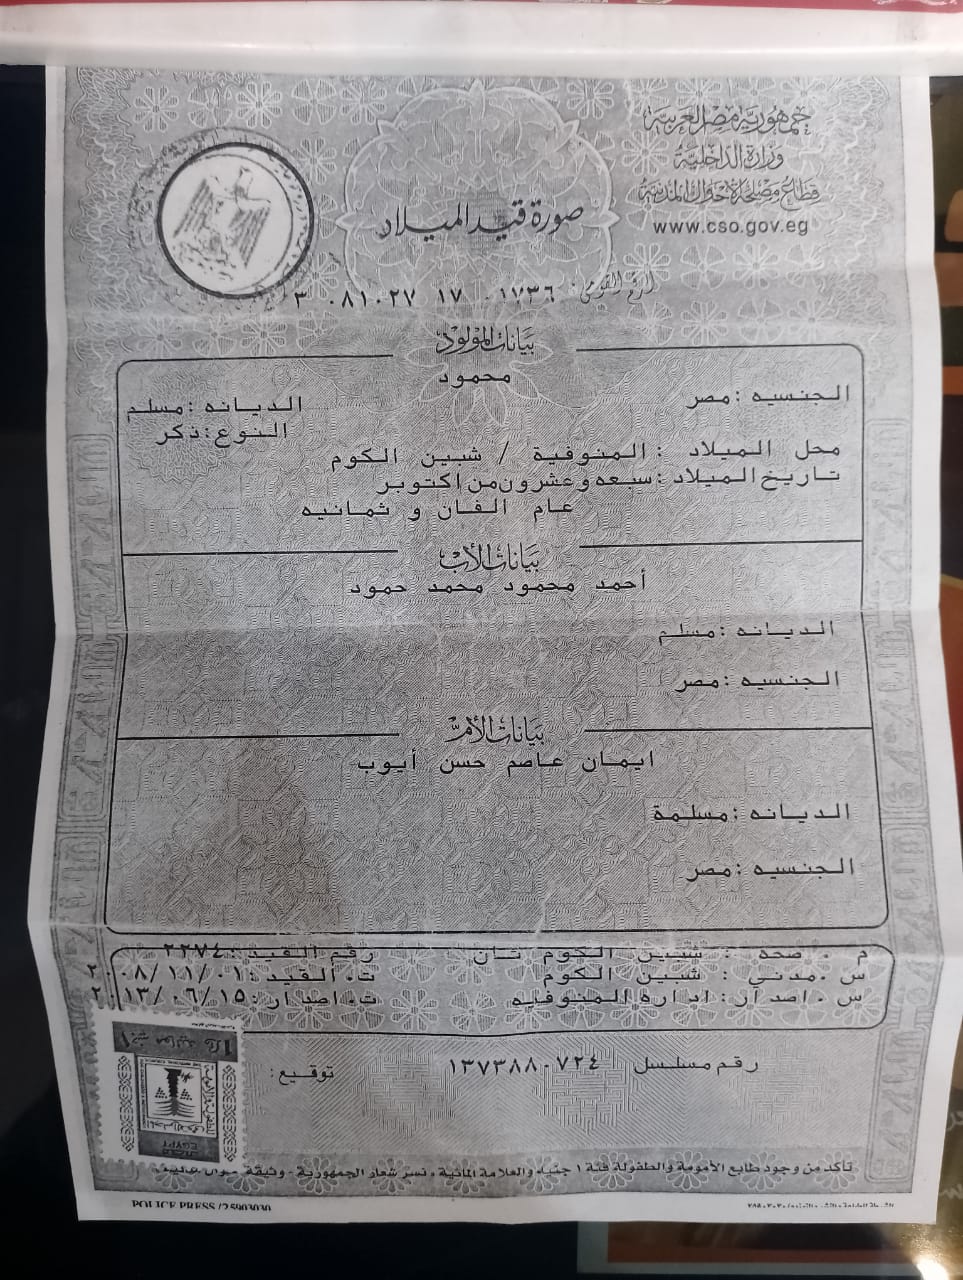 جمهورية مصر العربية
وزارة الداخلية
قطاع مصلحة الأحوال المدنية
www.cso.gov.eg
صورة قيد الميلاد
الرقم القومى: ٣ ٠٨١٠٢٧ ١٧ ٠١٧٣٦
بيانات المولود
محمود
الجنسيه : مصر
الديانه : مسلم
النوع : ذكر
محل الميلاد : المنوفية / شبين الكوم
تاريخ الميلاد : سبعه وعشرون من اكتوبر
عام الفان و ثمانيه
بيانات الأب
أحمد محمود محمد حمود
الديانه : مسلم
الجنسيه : مصر
بيانات الأم
ايمان عاصم حسن أيوب
الديانه : مسلمة
الجنسيه : مصر
م . صحه : شبين الكوم ثان رقم القيد : ٢٢٧٤
س .مدني : شبين الكوم ت. القيد : ٢٠٠٨/١١/٠١
س .اصدار : ادارة المنوفيه ت. اصدار : ٢٠١٣/٠٦/١٥
رقم مسلسل ١٣٧٣٨٨٠٧٢٤ توقيع :
EGYPT
تأكد من وجود طابع الأمومة والطفولة فئة ١ جنيه والعلامة المائية ، نسر شعار الجمهورية - وثيقة
POLICE PRESS /25903030